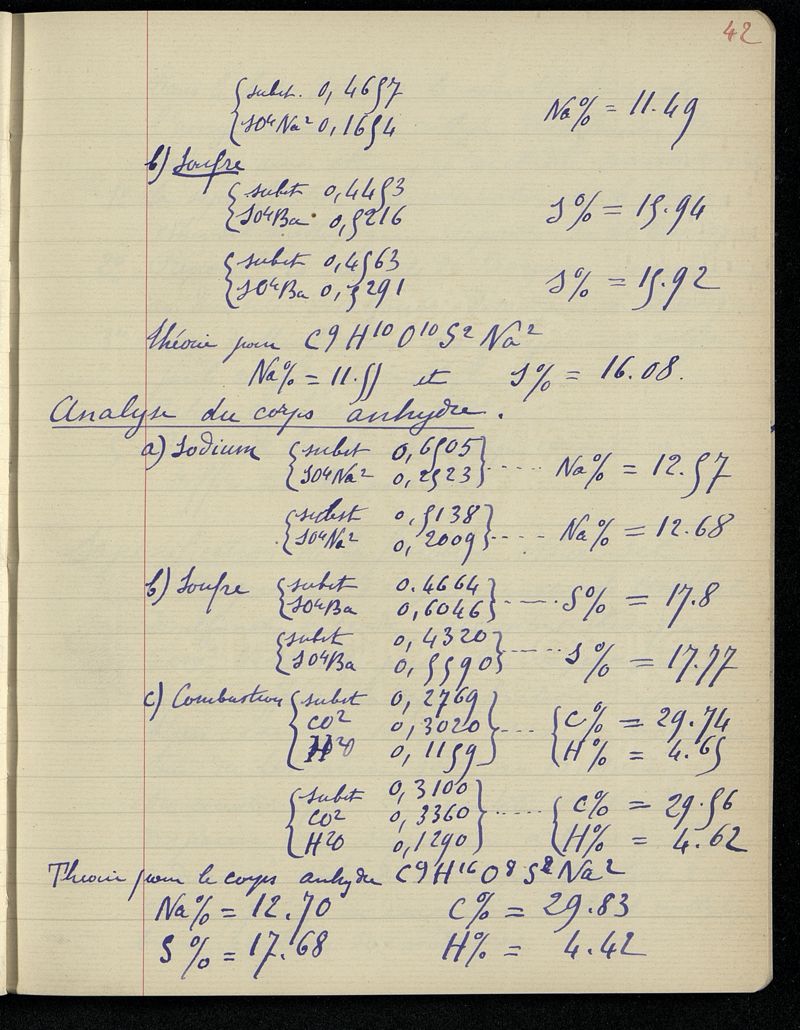 42
subst. 0,4657
SO4Na2 0,1654 Na% = 11.49
b) Soufre
subst 0,4453
SO4Ba 0,5216 S% = 15.94
subst 0,4563
SO4Ba 0,5291 S% = 15.92
Théorie pour C9H10O10S2Na2
Na% = 11.55 et S% = 16.08.
Analyse du corps anhydre.
a) Sodium subst 0,6505
SO4Na2 0,2523 .... Na% = 12.57
subst 0,5138
SO4Na2 0,2009 .... Na% = 12.68
b) Soufre subst 0.4664
SO4Ba 0,6046 .... S% = 17.8
subst 0,4320
SO4Ba 0,5590 .... S% = 17.77
c) Combustion subst 0,2769
CO2 0,3020 .... C% = 29.74
H2O 0,1159 H% = 4.65
subst 0,3100
CO2 0,3360 .... C% = 29.56
H2O 0,1290 H% = 4.62
Théorie pour le corps anhydre C9H16O8S2Na2
Na% = 12.70 C% = 29.83
S% = 17.68 H% = 4.42